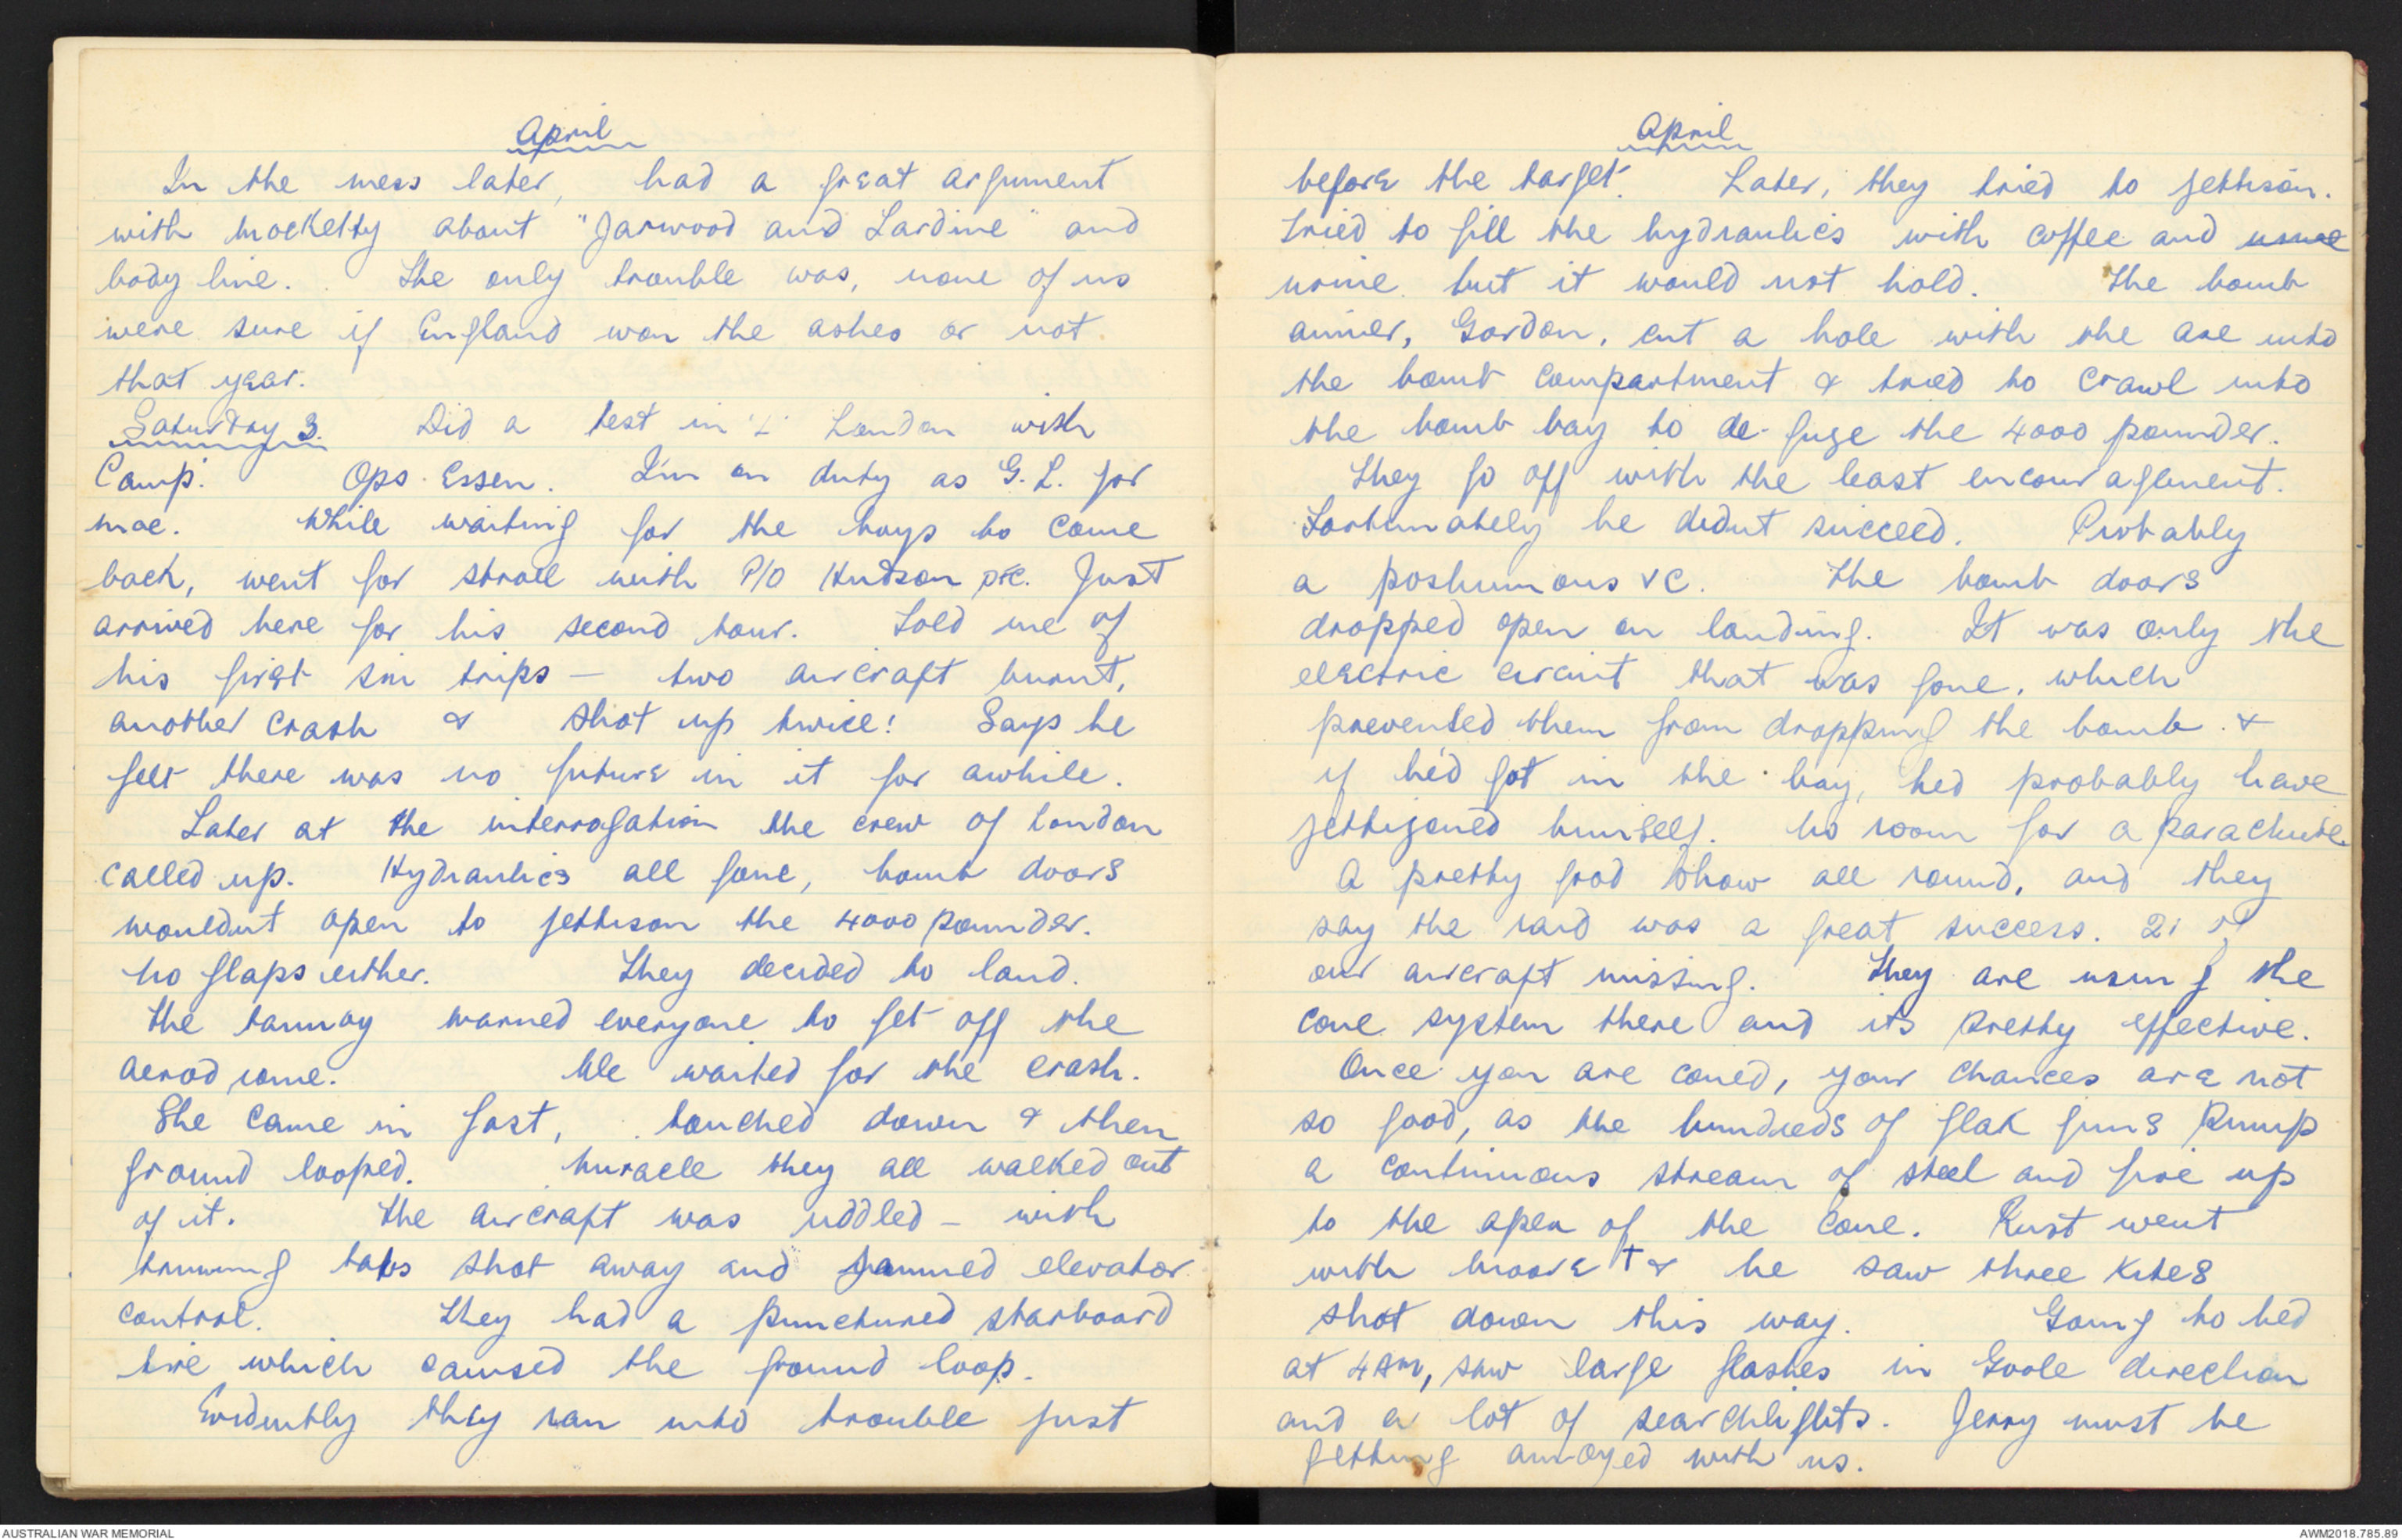 April
In the mess later, had a great argument
with Mocketty about "Jarwood and Lardine" and
body line. The only trouble was, none of us
were sure if England won the ashes or not
that year.
Saturday 3. Did a test in 'L' London with
Camp. Ops. Essen. I'm on duty as G.L. for
Mac. While waiting for the boys to come
back, went for stroll with P/O Hudson DFC. Just
arrived here for his second tour. Told me of
his first six trips - two aircraft burnt,
another crash & shot up twice! Says he
felt there was no future in it for awhile.
Later at the interrogation the crew of London
called up. Hydraulics all gone, bomb doors
wouldnt open to jettison the 4000 pounder.
No flaps either. They decided to land.
The tannoy warned everyone to get off the
aerodrome. We waited for the crash.
She came in fast, touched down & then
ground looped. Miracle they all walked out
of it. The aircraft was riddled - with
trimming tabs shot away and jammed elevator
control. They had a punctured starboard
tire which caused the ground loop.
Evidently they ran into trouble just
April
before the target. Later, they tried to jettison.
Tried to fill the hydraulics with coffee and
urine but it would not hold. The bomb
aimer, Gordon, cut a hole with the axe into
the bomb compartment & tried to crawl into
the bomb bay to de-fuze the 4000 pounder.
They go off with the least encouragement.
Fortunately he didnt succeed. Probably
a poshumous VC. The bomb doors
dropped open on landing. It was only the
electric circuit that was gone, which
prevented them from dropping the bomb &
if he'd got in the bay, hed probably have
jettisoned himself. No room for a parachute.
A pretty good show all round, and they
say the raid was a great success. 21 of
our aircraft missing. They are using the
cone system there and its pretty effective.
Once you are coned, your chances are not
so good, as the hundreds of flak guns pump
a continuous stream of steel and fire up
to the apex of the cone. Rust went
with Moore T & he saw three kites
shot down this way. Going to bed
at 4 AM, saw large flashes in Goole direction
and a lot of searchlights. Jerry must be
getting annoyed with us.
AUSTRALIAN WAR MEMORIAL
AWM2018.785.89